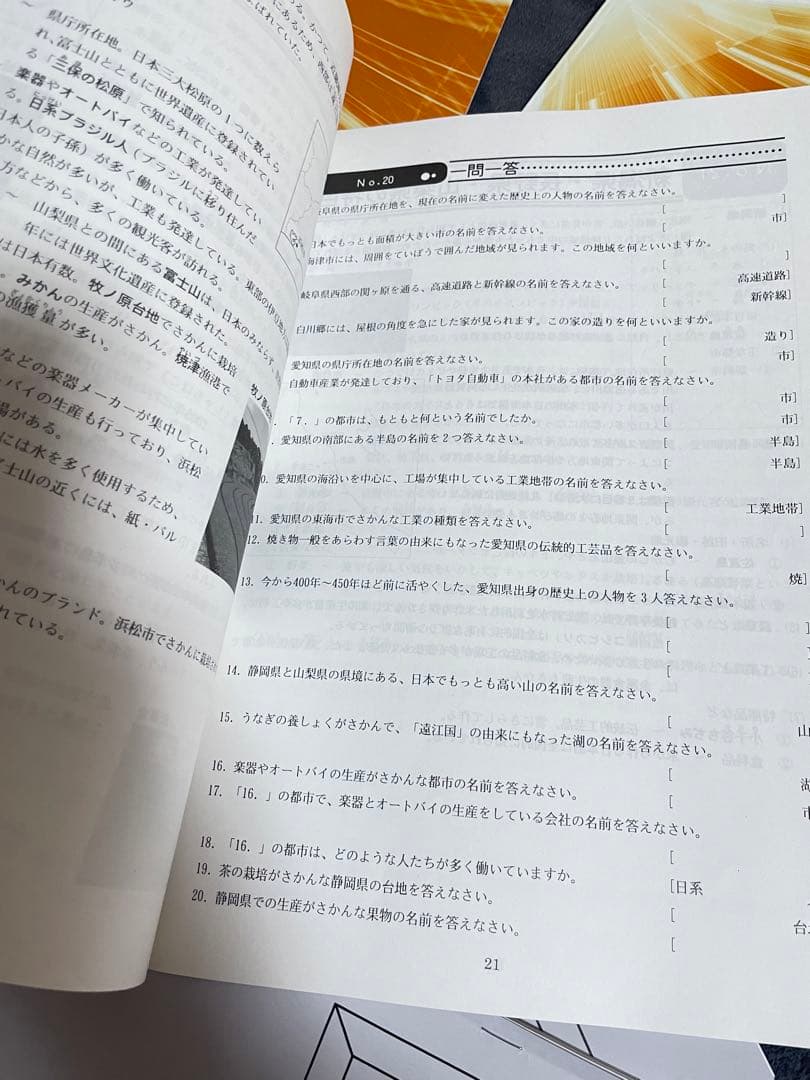 ～ 県庁所在地。日本三大松原の1つに数えら
れ、富士山とともに世界遺産に登録されてい
る「三保の松原」で知られている。
楽器やオートバイなどの工業が発達してい
る。日系ブラジル人（ブラジルに移り住んだ
日本人の子孫）が多く働いている。
かな自然が多いが、工業も発達している。東部の伊豆
方などから、多くの観光客が訪れる。
～ 山梨県との間にある富士山は、日本のみならず、
年には世界文化遺産に登録された。
は日本有数。牧ノ原台地でさかんに栽培
。みかんの生産がさかん。焼津漁港で
の漁獲量が多い。
などの楽器メーカーが集中してい
・バイの生産も行っており、浜松
場がある。
には水を多く使用するため、
富士山の近くには、紙・パル
かんのブランド。浜松市でさかんに栽培
れている。
No.20 一問一答
岐阜県の県庁所在地を、現在の名前に変えた歴史上の人物の名前を答えなさい。
[ ]
日本でもっとも面積が大きい市の名前を答えなさい。 [ 市]
海津市には、周囲をていぼうで囲んだ地域が見られます。この地域を何といいますか。
[ ]
岐阜県西部の関ヶ原を通る、高速道路と新幹線の名前を答えなさい。 [ 高速道路]
[ 新幹線]
白川郷には、屋根の角度を急にした家が見られます。この家の造りを何といいますか。
[ 造り]
愛知県の県庁所在地の名前を答えなさい。 [ 市]
自動車産業が発達しており、「トヨタ自動車」の本社がある都市の名前を答えなさい。
[ 市]
. 「7．」の都市は、もともと何という名前でしたか。 [ 市]
. 愛知県の南部にある半島の名前を2つ答えなさい。 [ 半島]
[ 半島]
0. 愛知県の海沿いを中心に、工場が集中している工業地帯の名前を答えなさい。
[ 工業地帯]
11. 愛知県の東海市でさかんな工業の種類を答えなさい。 [ ]
12. 焼き物一般をあらわす言葉の由来にもなった愛知県の伝統的工芸品を答えなさい。
[ 焼]
13. 今から400年～450年ほど前に活やくした、愛知県出身の歴史上の人物を3人答えなさい。
[ ]
[
[
14. 静岡県と山梨県の県境にある、日本でもっとも高い山の名前を答えなさい。
[ 山
15. うなぎの養しょくがさかんで、「遠江国」の由来にもなった湖の名前を答えなさい。
[ 湖
16. 楽器やオートバイの生産がさかんな都市の名前を答えなさい。 [ 市
17. 「16．」の都市で、楽器とオートバイの生産をしている会社の名前を答えなさい。
[
18. 「16．」の都市は、どのような人たちが多く働いていますか。 [日系
19. 茶の栽培がさかんな静岡県の台地を答えなさい。 [ 台
20. 静岡県での生産がさかんな果物の名前を答えなさい。 [
21